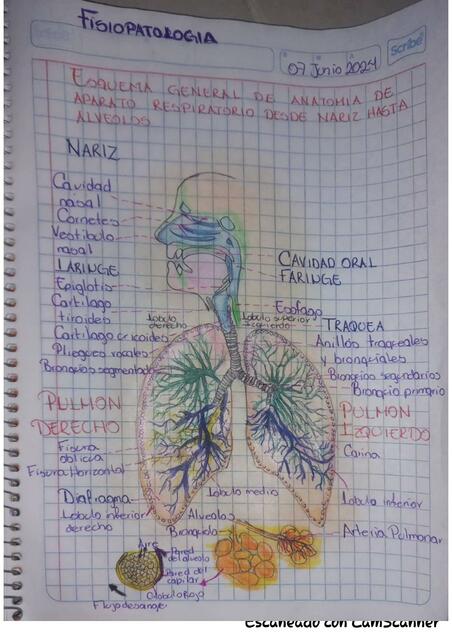 FISIOPATOLOGIA
scribe
07 Junio 2024
ESQUEMA GENERAL DE ANATOMIA DE
APARATO RESPIRATORIO DESDE NARIZ HASTA
ALVEOLOS
NARIZ
Cavidad
nasal
Cornetes
Vestibulo
nasal
LARINGE
Epiglotis
Cartilago
tiroides
Cartilago cricoides
Pliegues vocales
Bronquios segmentados
CAVIDAD ORAL
FARINGE
Esofago
Lobulo
derecho
Lobulo superior
izquierdo
TRAQUEA
Anillos traqueales
y bronquiales
Bronquios segundarios
Bronquio primario
PULMON
DERECHO
PULMON
IZQUIERDO
Fisura
oblicua
Fisura Horizontal
Carina
Diafragma
Lobulo inferior
derecho
Lobulo medio
Lobulo inferior
Alveolos
Bronquiolo
Arteria Pulmonar
Aire
Pared del alveolo
Pared del
capilar
Globulo Rojo
Flujo de sangre
Escaneado con CamScanner